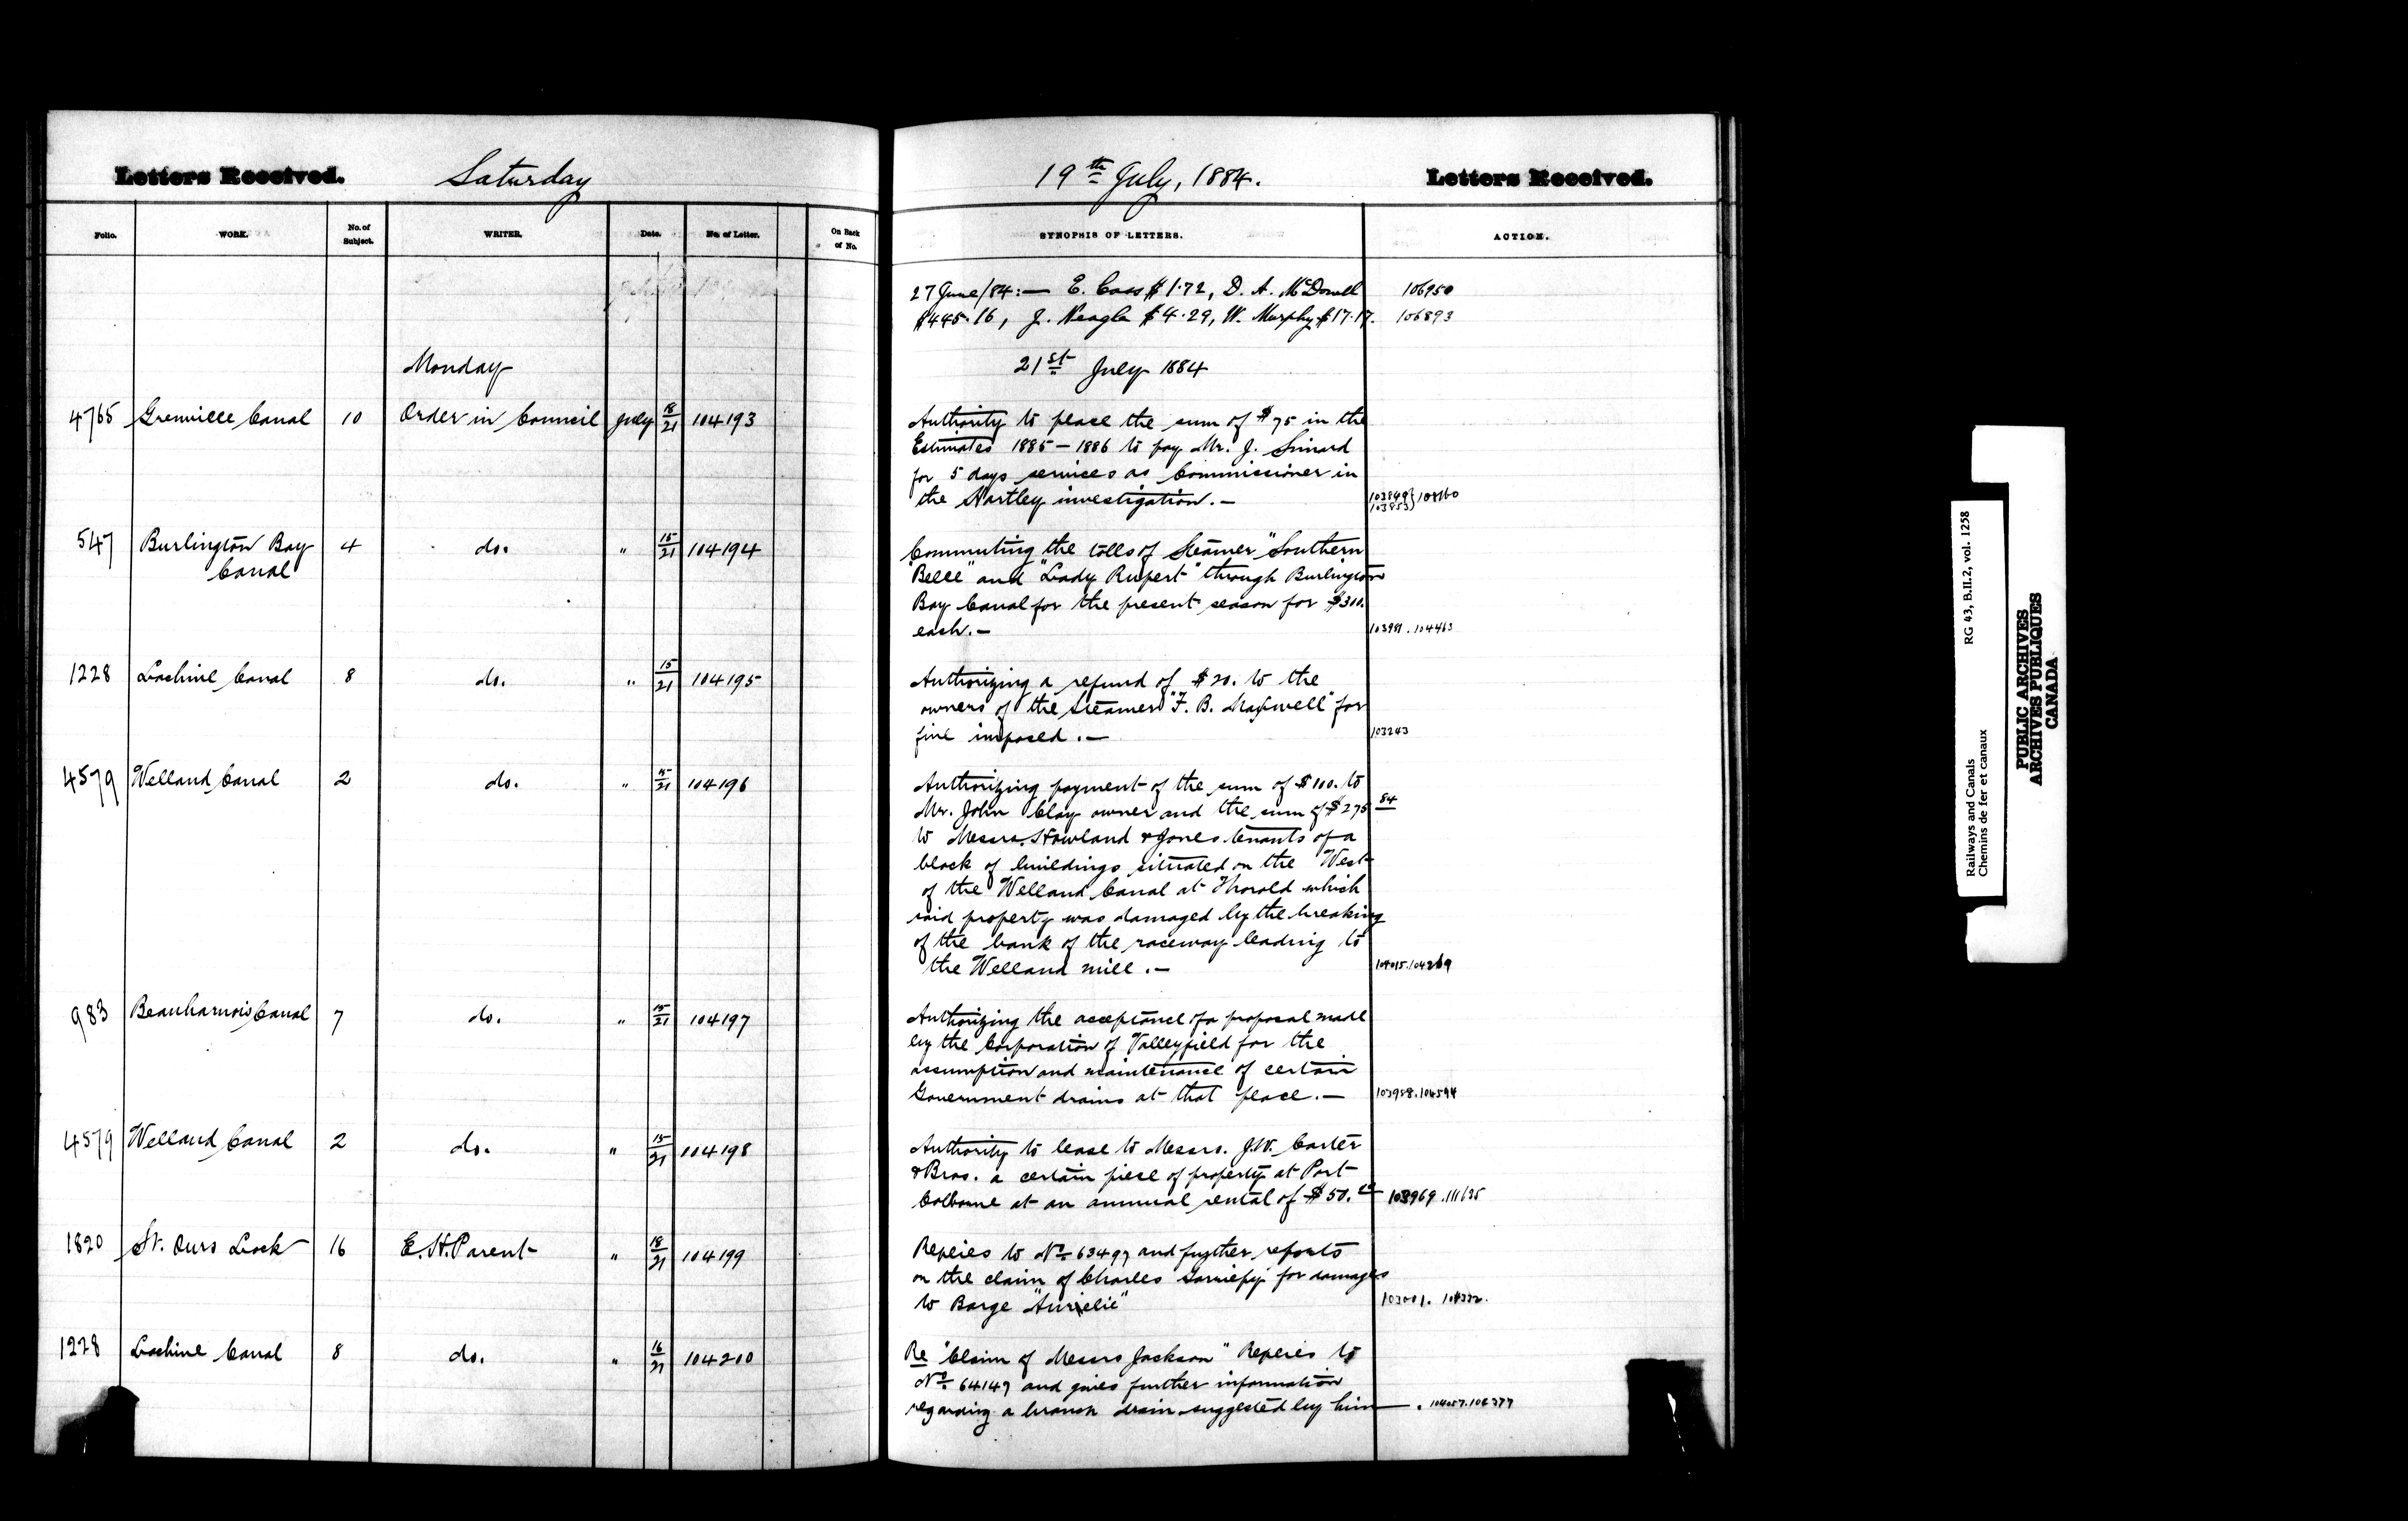 Letters Received. Saturday 19th July, 1884. Letters Received.
Folio. WORK. No. of Subject. WRITER. Date. No. of Letter. On Back of No. SYNOPSIS OF LETTERS. ACTION.
27 June/84:— E. Cass $1.72, D. A. McDonell 106950
$445.16, J. Neagle $4.29, W. Murphy $17.17. 106893
Monday 21st July 1884
4765 Grenville Canal 10 Order in Council July 18/21 104193
Authority to place the sum of $75 in the
Estimates 1885-1886 to pay Mr. J. Simard
for 5 days services as Commissioner in
the Hartley investigation.—
103849 103853 } 108160
547 Burlington Bay Canal 4 do. " 15/21 104194
Commuting the tolls of Steamer "Southern
Belle" and "Lady Rupert" through Burlington
Bay Canal for the present season for $300.
each.— 103981. 104463
1228 Lachine Canal 8 do. " 15/21 104195
Authorizing a refund of $20. to the
owners of the steamer "F. B. Maxwell" for
fine imposed.— 103243
4579 Welland Canal 2 do. " 15/21 104196
Authorizing payment of the sum of $100. to
Mr. John Clay owner and the sum of $275 84
to Messrs. Howland & Jones tenants of a
block of buildings situated on the West
of the Welland Canal at Thorold which
said property was damaged by the breaking
of the bank of the raceway leading to
the Welland mill.— 104015. 104269
983 Beauharnois Canal 7 do. " 15/21 104197
Authorizing the acceptance of a proposal made
by the Corporation of Valleyfield for the
assumption and maintenance of certain
Government drains at that place.— 103958. 104594
4579 Welland Canal 2 do. " 15/21 104198
Authority to lease to Messrs. J.W. Carter
& Bros. a certain piece of property at Port
Colborne at an annual rental of $50. 103969. 111635
1820 St. Ours Lock 16 E. H. Parent " 18/21 104199
Replies to No 63497 and further reports
on the claim of Charles Gariepy for damages
to Barge "Aurelie" 103001. 104332.
1228 Lachine Canal 8 do. " 16/21 104200
Re "Claim of Messrs Jackson" Replies to
No 64147 and gives further information
regarding a branch drain suggested by him—. 104057. 104377
Railways and Canals RG 43, B.II.2, vol. 1258
Chemins de fer et canaux
PUBLIC ARCHIVES
ARCHIVES PUBLIQUES
CANADA